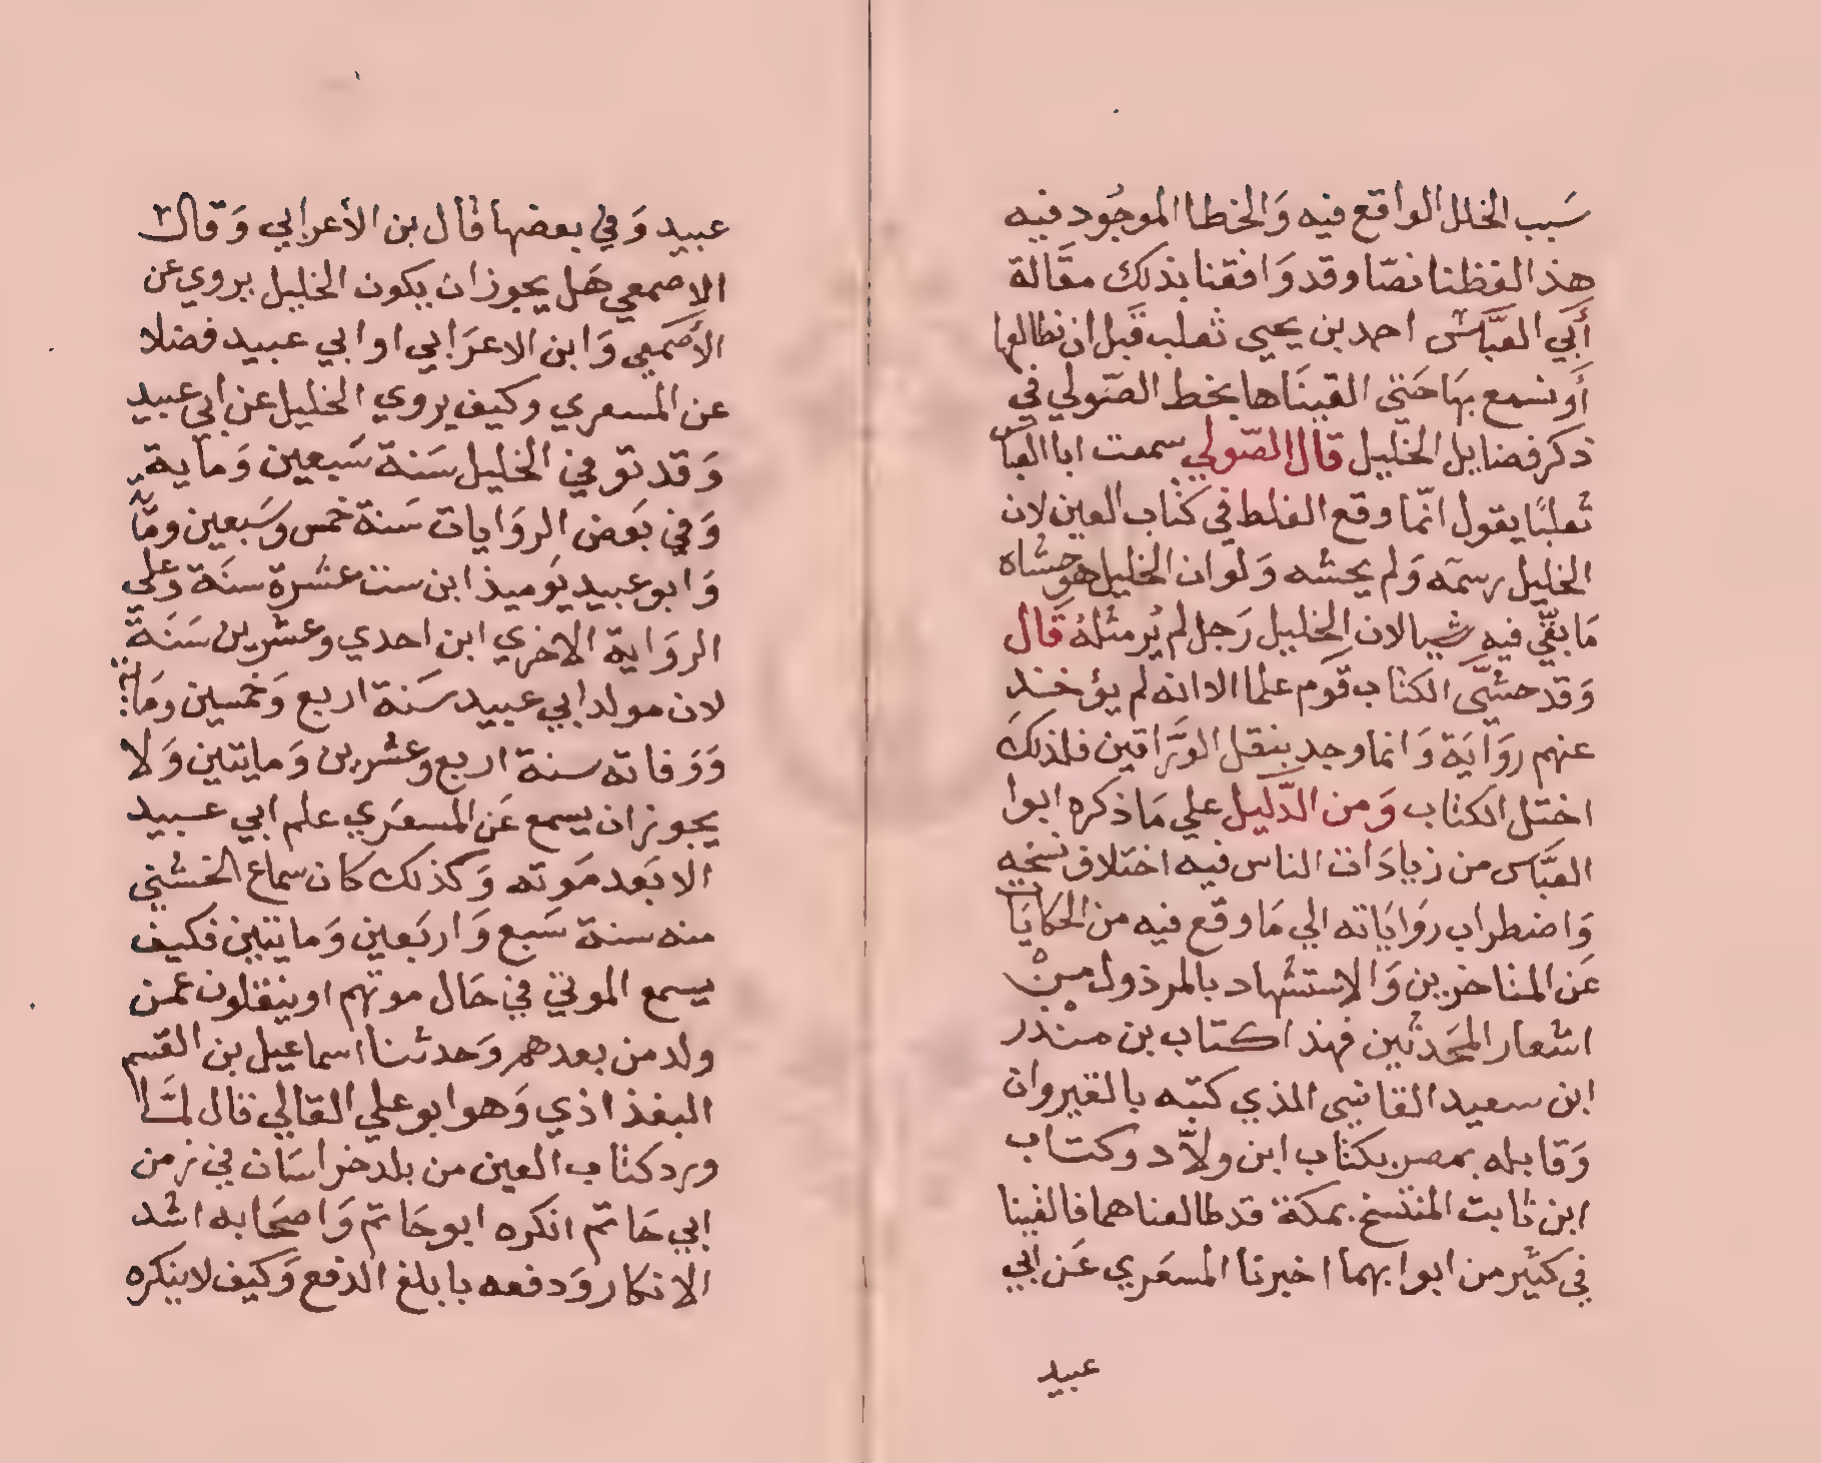 سَبب الخلل الواقع فيه وَالخطا الموجُود فيه
هذ الفظنا نصّا وقد وَافقنا بذلك مقَالة
أَبي العبَّاس احمد بن يحيى ثعلب قَبل ان نطالعها
أَو نسمع بهَا حَتى القينَاها بخط الصّولي في
ذكر فضايل الخليل قال الصّولي سمعت ابا العباس
ثعلبًا يقول انّما وقع الغلط في كتاب العين لان
الخليل رسمَه وَلم يحشه وَلوان الخليل هو حشاه
مَا بقّي فيه شيا لان الخليل رَجل لم يُر مثلهُ قَال
وَقد حشّى الكتاب قوم علما الا انه لم يؤخذ
عنهم روَايَة وَانما وجد بنقل الورَّاقين فلذلكَ
اختل الكتاب وَمن الدَّليل علي مَا ذكره ابوا
العبَّاس من زيادَات الناس فيه اختلاف نسخه
وَاضطراب روَايَاته الي مَا وقع فيه من الحكايَات
عَن المتاخرين وَالاستشهاد بالمرذول مِنْ
اشعار المحَدثين فهذا كتاب بن منْذر
ابن سعيد القاضى الذي كتبه بالقيروان
وَقابله بمصر بكتاب ابن ولاّد وكتاب
ابن ثابت المنتسخ بمكة قد طالعناهما فالفينا
في كثير من ابوابهما اخبرنا المسعَري عَن ابي
عبيد
عبيد وَفي بعضها قال بن الأعرابي وَقال
الاصمعي هَل يجوز ان يكون الخليل يروي عن
الأَصمعي وَابن الاعرَابي او ابي عبيد فضلا
عن المسعري وكيف يروي الخليل عن ابي عبيد
وَقد توفي الخليل سَنة سَبعين وَماية
وَفي بَعض الروَايات سَنة خمس وسَبعين ومَا
وَابو عبيد يَوميذ ابن ست عشرة سنَة وعلي
الروَاية الاخري ابن احدي وعشرين سَنَة
لان مولد ابي عبيد سَنة اربع وَخمسين ومَا
وَوَفاته سنة اربع وعشرين وَمايتين وَلا
يجوز ان يسمع عَن المسعَري علم ابي عبيد
الا بَعد مَوته وَكذلك كان سماع الخشني
منه سنة سَبع وَاربَعين وَمايتين فكيف
يسمع الموتي في حَال موتهم او ينقلون عمن
ولد من بعدهم وَحدثنا اسماعيل بن القسم
البغذاذي وَهو ابو علي القالي قال لمَّا
ورد كتاب العين من بلد خراسَان في زمن
ابي حَاتم انكره ابو حَاتم وَاصحَابه اشد
الانكار وَدفعه بابلغ الدفع وَكيف لا ينكره